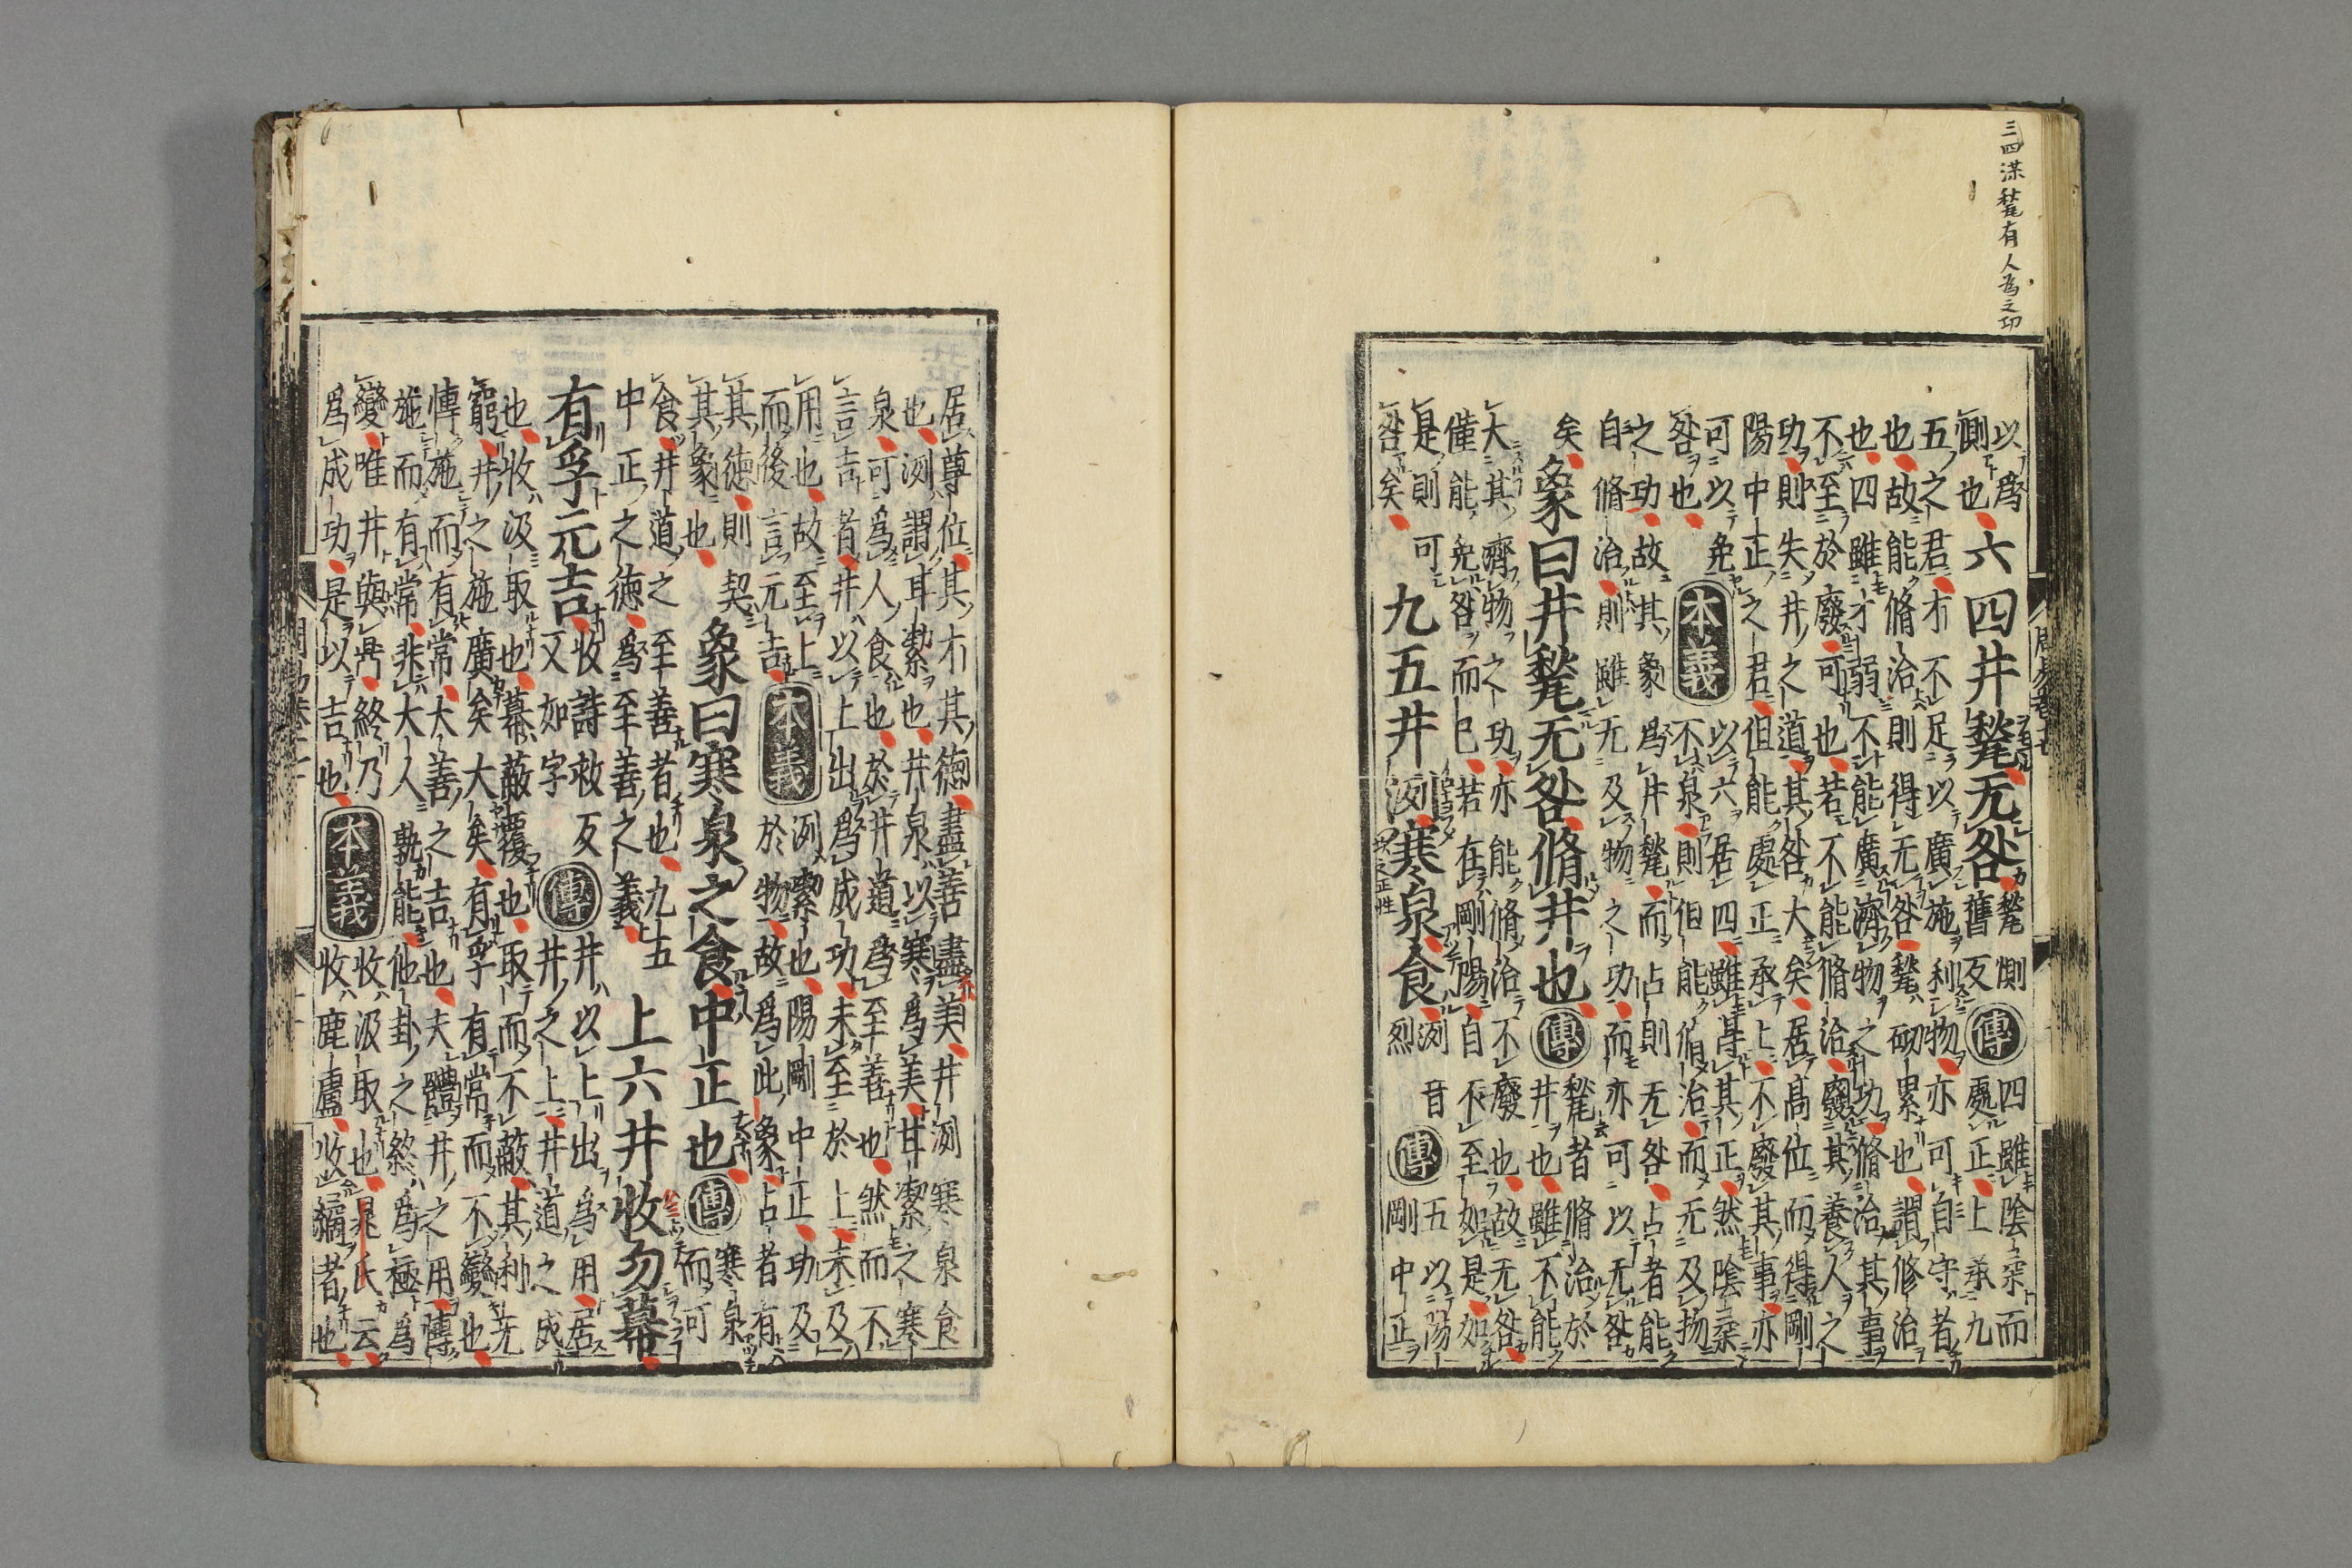 三四渫甃有人爲之功
以爲
惻也
六四井甃无咎
甃側
舊反
傳
四雖陰柔而
處正上承九
五之君才不足以廣施利物亦可自守者
也故能脩治則得无咎甃砌累也謂修治
也四雖才弱不能廣濟物之功脩治其事
不至於廢可也若不能脩治廢其養人之
功則失井之道其咎大矣居高位而得剛
陽中正之君但能處正承上不廢其事亦
可以免
咎也
本義
以六居四雖得其正然陰柔
不泉則但能脩治而无及物
之功故其象爲井甃而占則无咎占者能
自脩治則雖无及物之功而亦可以无咎
矣
象曰井甃无咎脩井也
傳
甃者脩治於
井也雖不能
大其濟物之功亦能脩治不廢也故无咎
僅能免咎而已若在剛陽自不至如是如
是則可
咎矣
九五井洌寒泉食
洌音
烈
傳
五以陽
剛中正
居尊位其才其徳盡善盡美井洌寒泉食
也洌謂甘絜也井泉以寒爲美甘潔之寒
泉可爲人食也於井道爲至善也然而不
言吉者井以上出爲成功未至於上未及
用也故至上
而後言元吉
本義
洌絜也陽剛中正功及
於物故爲此象占者有
其徳則契
其象也
象曰寒泉之食中正也
傳
寒泉
而可
食井道之至善者也九五
中正之徳爲至善之義
上六井收勿幕
有孚元吉
收詩救反
又如字
傳
井以上出爲用居
井之上井道之成
也收汲取也幕蔽覆也取而不蔽其利无
窮井之施廣矣大矣有孚有常而不變也
博施而有常大善之吉也夫體井之用博
施而有常非大人孰能他卦之終爲極爲
變唯井與鼎終乃
爲成功是以吉也
本義
收汲取也晁氏云
收鹿盧收繘者也